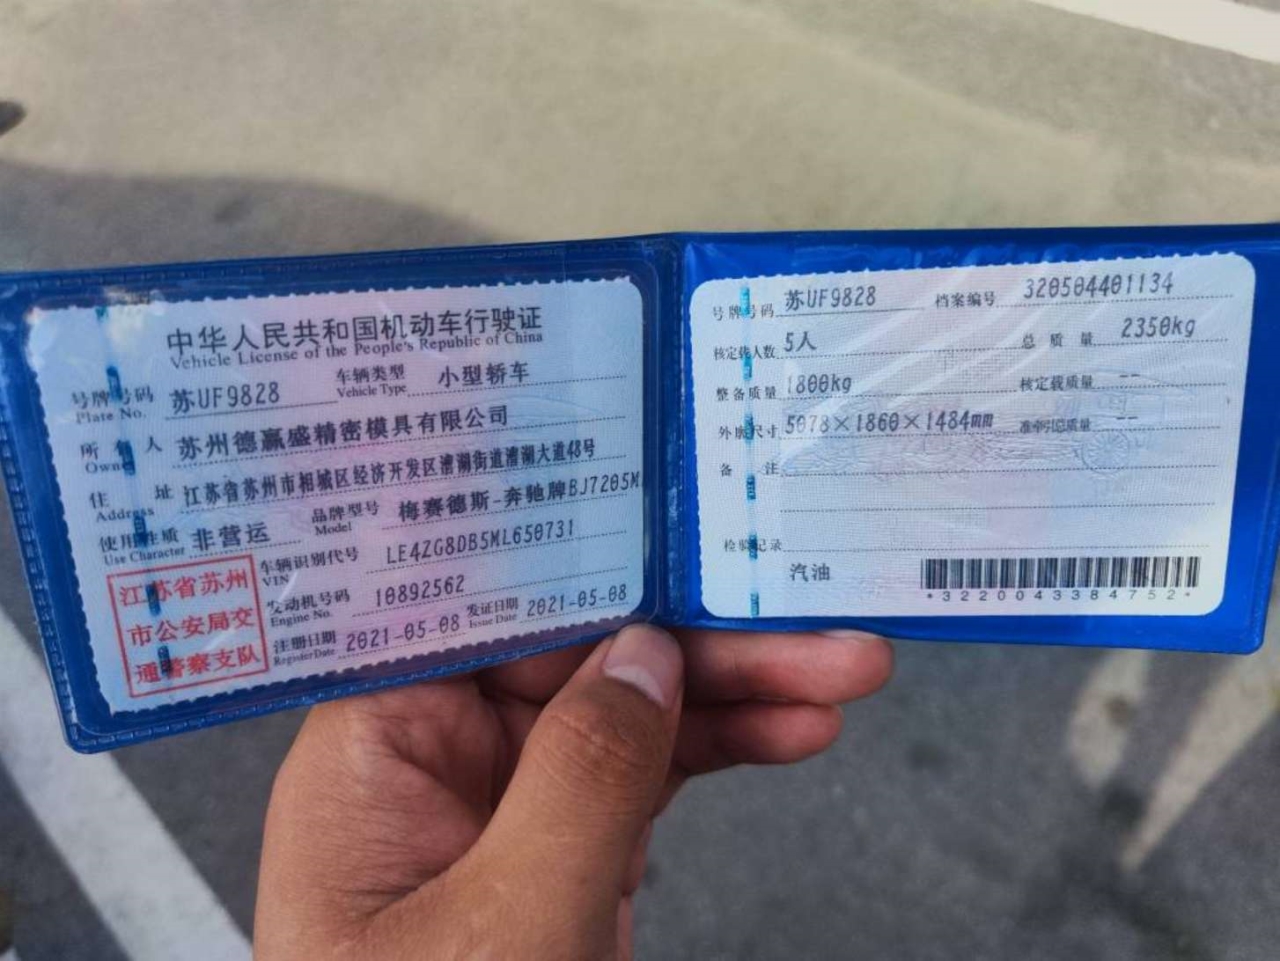 中华人民共和国机动车行驶证
Vehicle License of the People's Republic of China
号牌号码 苏UF9828 车辆类型 小型轿车
Plate No. Vehicle Type
所有人 苏州德赢盛精密模具有限公司
Owner
住址 江苏省苏州市相城区经济开发区漕湖街道漕湖大道48号
Address
使用性质 非营运 品牌型号 梅赛德斯-奔驰牌BJ7205M
Use Character Model
车辆识别代号 LE4ZG8DB5ML650731
VIN
发动机号码 10892562
Engine No.
注册日期 2021-05-08 发证日期 2021-05-08
Register Date Issue Date
江苏省苏州
市公安局交
通警察支队
号牌号码 苏UF9828 档案编号 320504401134
核定载人数 5人 总质量 2350kg
整备质量 1800kg 核定载质量 --
外廓尺寸 5078×1860×1484mm 准牵引总质量 --
备注
检验记录
汽油
*3220043384752*